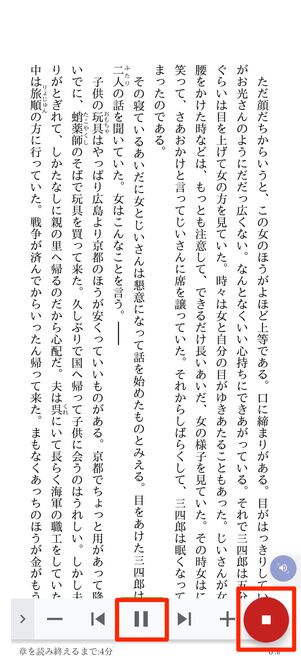 ただ顔だちからいうと、この女のほうがよほど上等である。口に締まりがある。目がはっきりしてい
がお光さんのようにだだっ広くない。なんとなくいい心持ちにできあがっている。それで三四郎は五分
ぐらいは目を上げて女の方を見ていた。時々は女と自分の目がゆきあたることもあった。じいさんが女
腰をかけた時などは、もっとも注意して、できるだけ長いあいだ、女の様子を見ていた。その時女はに
笑って、さあおかけと言ってじいさんに席を譲っていた。それからしばらくして、三四郎は眠くなって
まったのである。
その寝ているあいだに女とじいさんは懇意になって話を始めたものとみえる。目をあけた三四郎は
二人の話を聞いていた。女はこんなことを言う。――
子供の玩具はやっぱり広島より京都のほうが安くっていいものがある。京都でちょっと用があって降
いでに、蛸薬師のそばで玩具を買って来た。久しぶりで国へ帰って子供に会うのはうれしい。しかし夫
りがとぎれて、しかたなしに親の里へ帰るのだから心配だ。夫は呉にいて長らく海軍の職工をしていた
中は旅順の方に行っていた。戦争が済んでからいったん帰って来た。まもなくあっちのほうが金がもう
章を読み終えるまで:4分